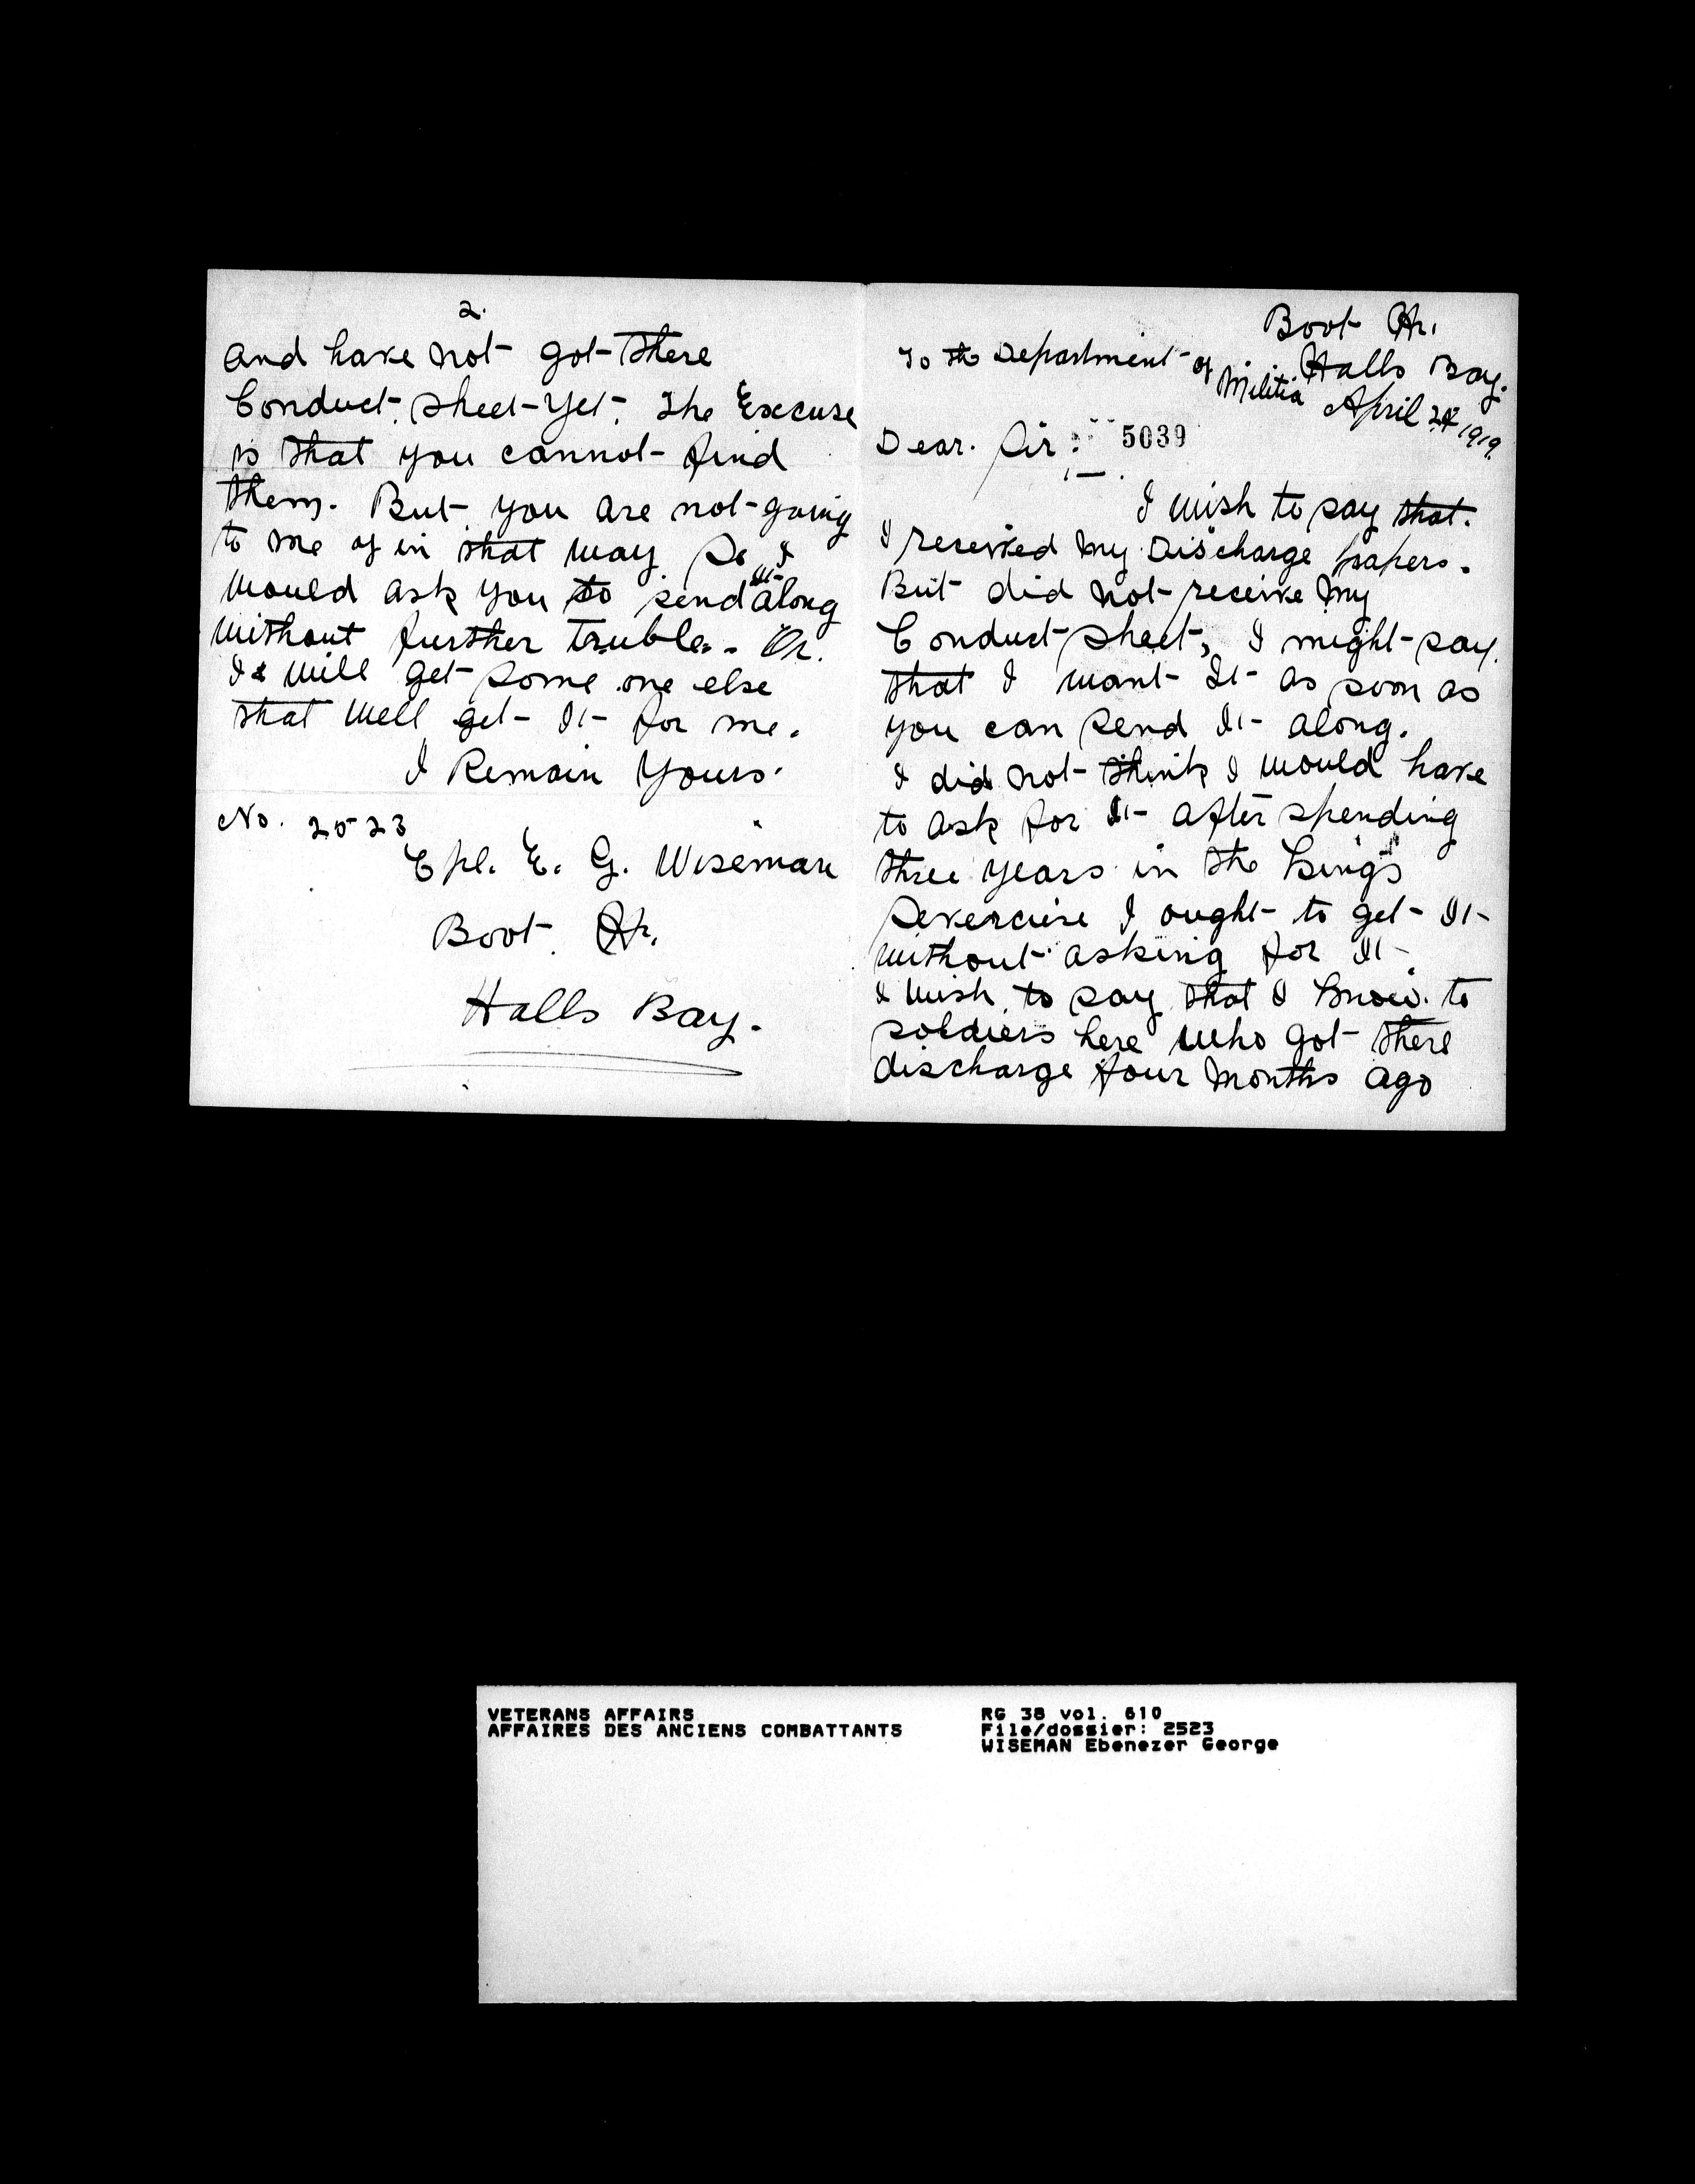 Boot Hr.
To the Department of Militia
Halls Bay.
April 24 1919.
Dear. Sir: 5039
I wish to say that.
I reseived my Discharge papers.
But did not receive my
Conduct sheet, I might say.
that I want It as soon as
you can send It along.
I did not think I would have
to ask for It after spending
three years in the King's
Severcise I ought to get It
without asking for It
I wish to say that I know. to
soldiers here who got there
discharge four months ago
2.
and have not got there
Conduct. sheet yet. The Excuse
is that you cannot find
them. But you are not going
to me of in that way. So I
would ask you to send it along
without further truble. Or.
I will get some one else
that well get It for me.
I Remain Yours.
No. 2523
Cpl. E. G. Wiseman
Boot Hr.
Halls Bay.
VETERANS AFFAIRS
AFFAIRES DES ANCIENS COMBATTANTS
RG 38 vol. 610
File/dossier: 2523
WISEMAN Ebenezer George